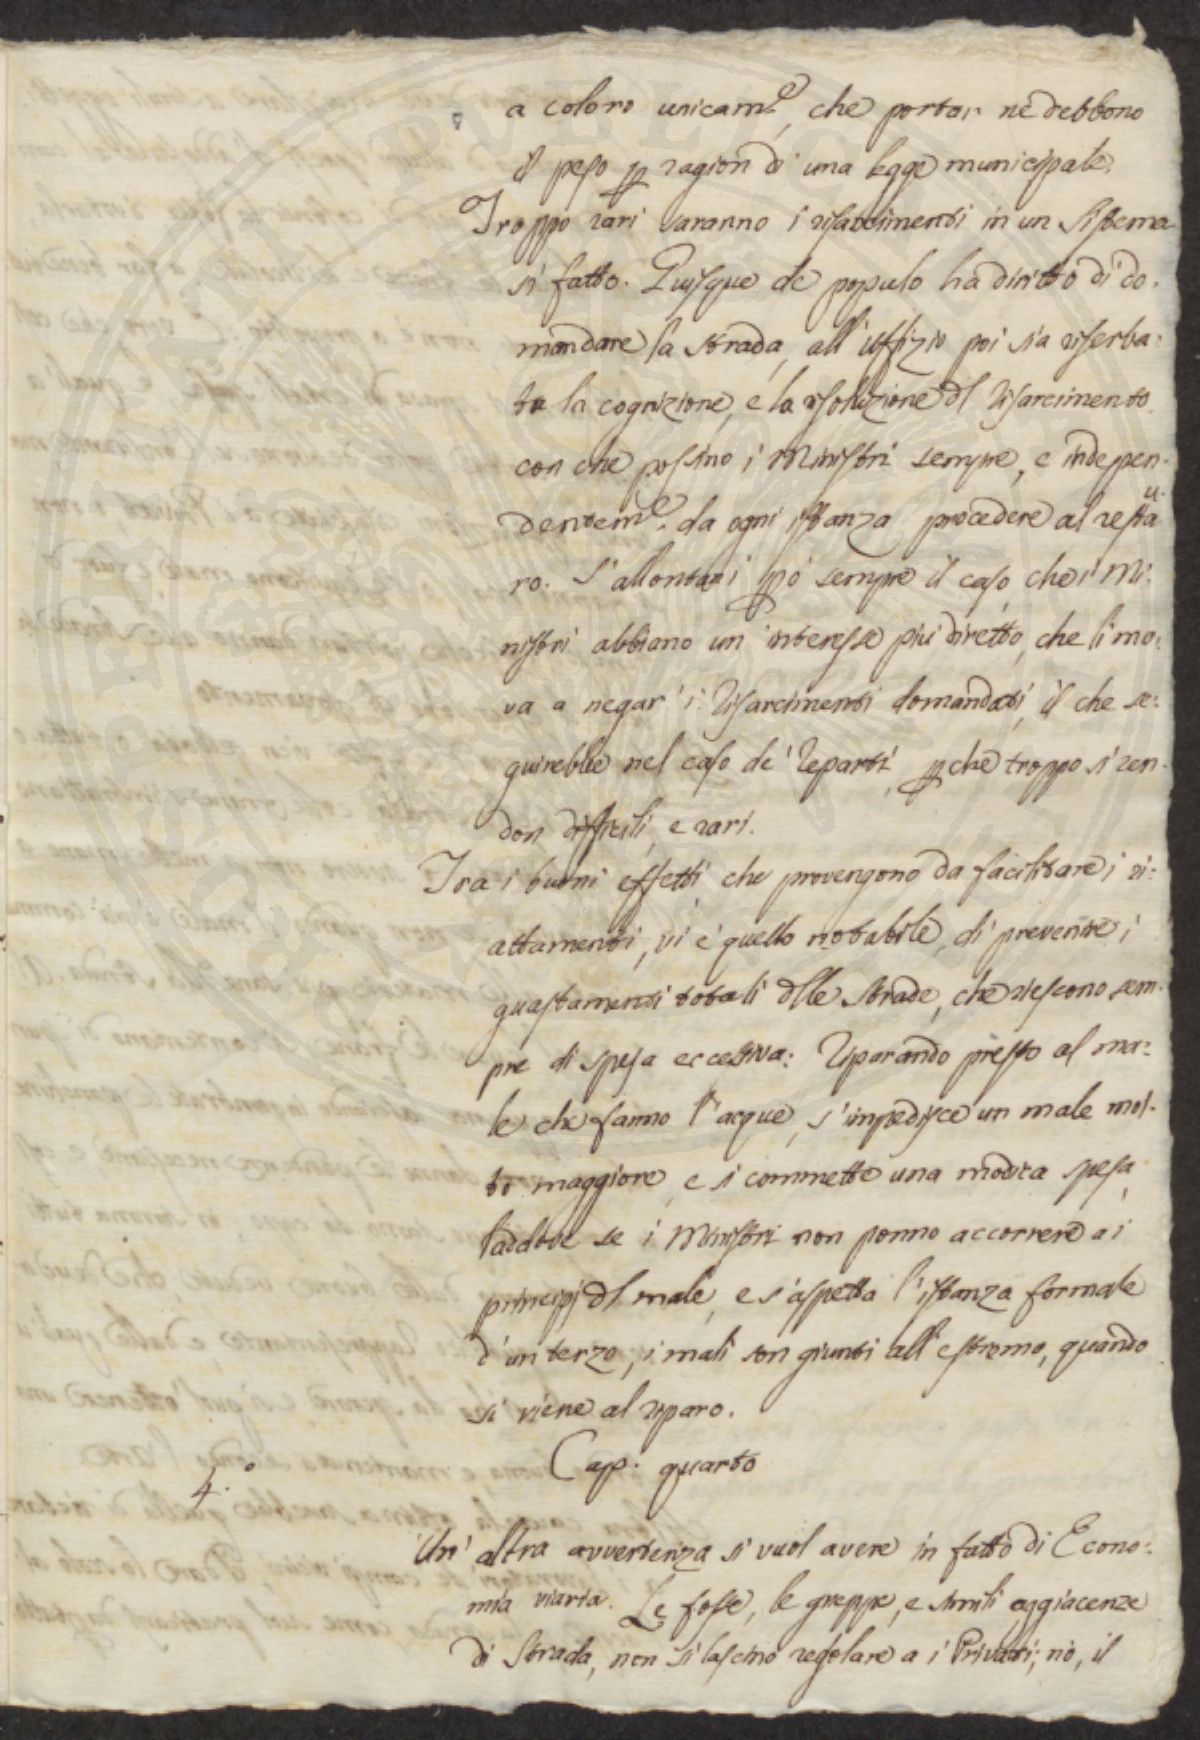 a coloro unicam.e, che portar ne debbono
il peso p ragion di una legge municipale.
Troppo rari saranno i risarcimenti in un sistema
sì fatto. Quisque de populo ha diritto di do-
mandare la strada, all'uffizio poi sia riserba:
ta la cognizione, e la risoluzione dl risarcimento.
con che possino i Ministri sempre, e indepen-
dentem.e da ogni istanza procedere al restau-
ro. S'allontani pò sempre il caso, che i Mi:
nistri abbiano un interesse più diretto, che li mo:
va a negar i risarcimenti domandati, il che se:
guirebbe nel caso de' reparti, pchè troppo si ren-
don difficili, e rari.
Tra i buoni effetti, che provengono da facilitare i ri:
attamenti, vi è quello notabile, di prevenire i
guastamenti totali dlle strade, che riescono sem-
pre di spesa eccessiva: Riparando presto al ma:
le che fanno l'acque, s'impedisce un male mol-
to maggiore, e si commette una modica spesa,
laddove se i Ministri non ponno accorrere ai
principj dl male, e s'aspetta l'istanza formale
d'un terzo, i mali son giunti all'estremo, quando
si viene al riparo.
Cap. quarto
4.°
Un' altra avvertenza si vuol avere in fatto di Econo:
mia viaria. Le fosse, le greppe, e simili aggiacenze
di strada, non si lascino regolare a i Privati; nò, il